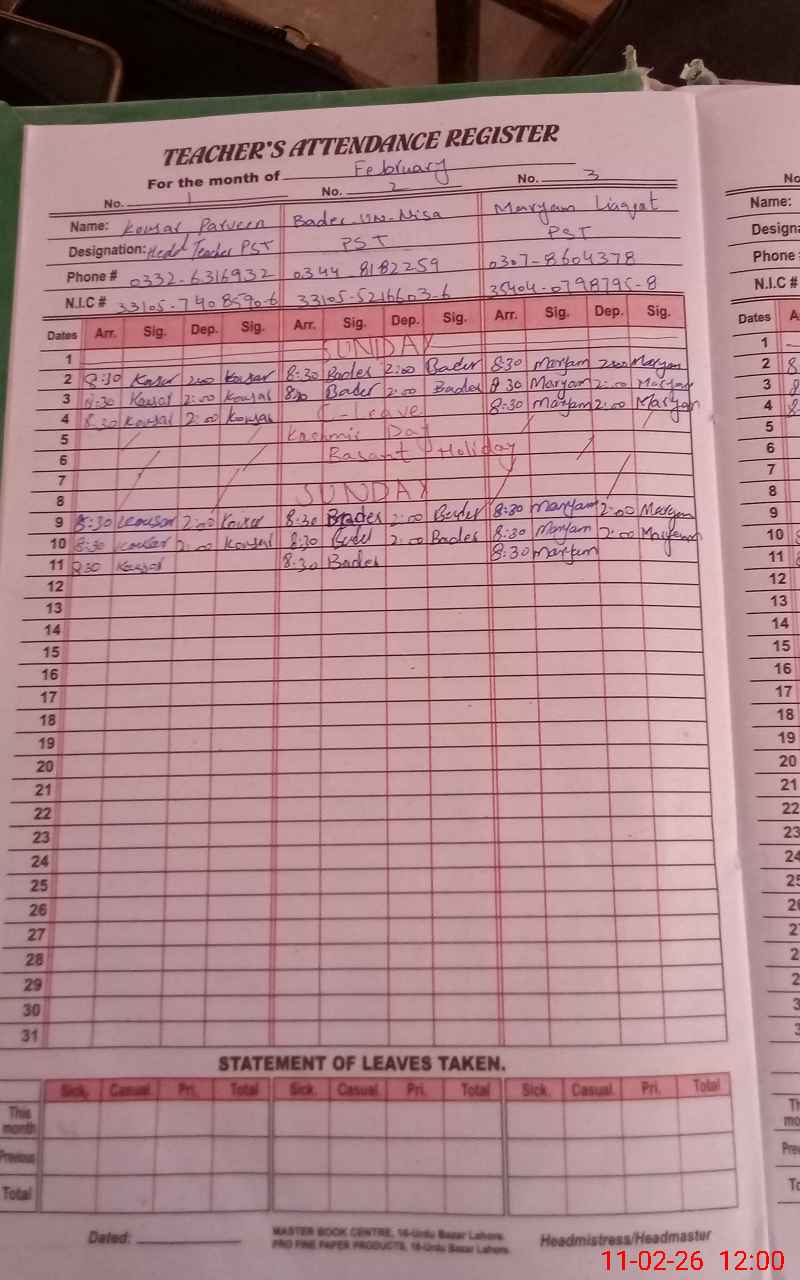 TEACHER'S ATTENDANCE REGISTER
For the month of February
No. 1 No. 2 No. 3
Name: Kousar Parveen Bader un-Nisa Maryam Liaqat
Designation: Head Teacher PST PST PST
Phone # 0332-6316932 0344 8182259 0307-8604378
N.I.C # 33105-7408590-6 33105-5216603-6 35404-0798795-8
Dates Arr. Sig. Dep. Sig. Arr. Sig. Dep. Sig. Arr. Sig. Dep. Sig.
1 SUNDAY
2 8:30 Kousar 2:00 Kousar 8:30 Bader 2:00 Bader 8:30 Maryam 2:00 Maryam
3 8:30 Kousar 2:00 Kousar 8:30 Bader 2:00 Bader 8:30 Maryam 2:00 Maryam
4 8:30 Kousar 2:00 Kousar C-Leave 8:30 Maryam 2:00 Maryam
5 Kashmir Day
6 Basant Holiday
7
8 SUNDAY
9 8:30 Kousar 2:00 Kousar 8:30 Bader 2:00 Bader 8:30 Maryam 2:00 Maryam
10 8:30 Kousar 2:00 Kousar 8:30 Bader 2:00 Bader 8:30 Maryam 2:00 Maryam
11 8:30 Kousar 8:30 Bader 8:30 Maryam
12
13
14
15
16
17
18
19
20
21
22
23
24
25
26
27
28
29
30
31
STATEMENT OF LEAVES TAKEN.
Sick. Casual Pri. Total Sick. Casual Pri. Total Sick. Casual Pri. Total
This month
Previous
Total
Dated: MASTER BOOK CENTRE, 16-Urdu Bazar Lahore. Headmistress/Headmaster
PRO FINE PAPER PRODUCTS, 16-Urdu Bazar Lahore.
No
Name:
Phone
N.I.C #
Dates
1
2 8
3
4
5
6
7
8
9
10
11
12
13
14
15
16
17
18
19
20
21
22
23
24
25
11-02-26 12:00